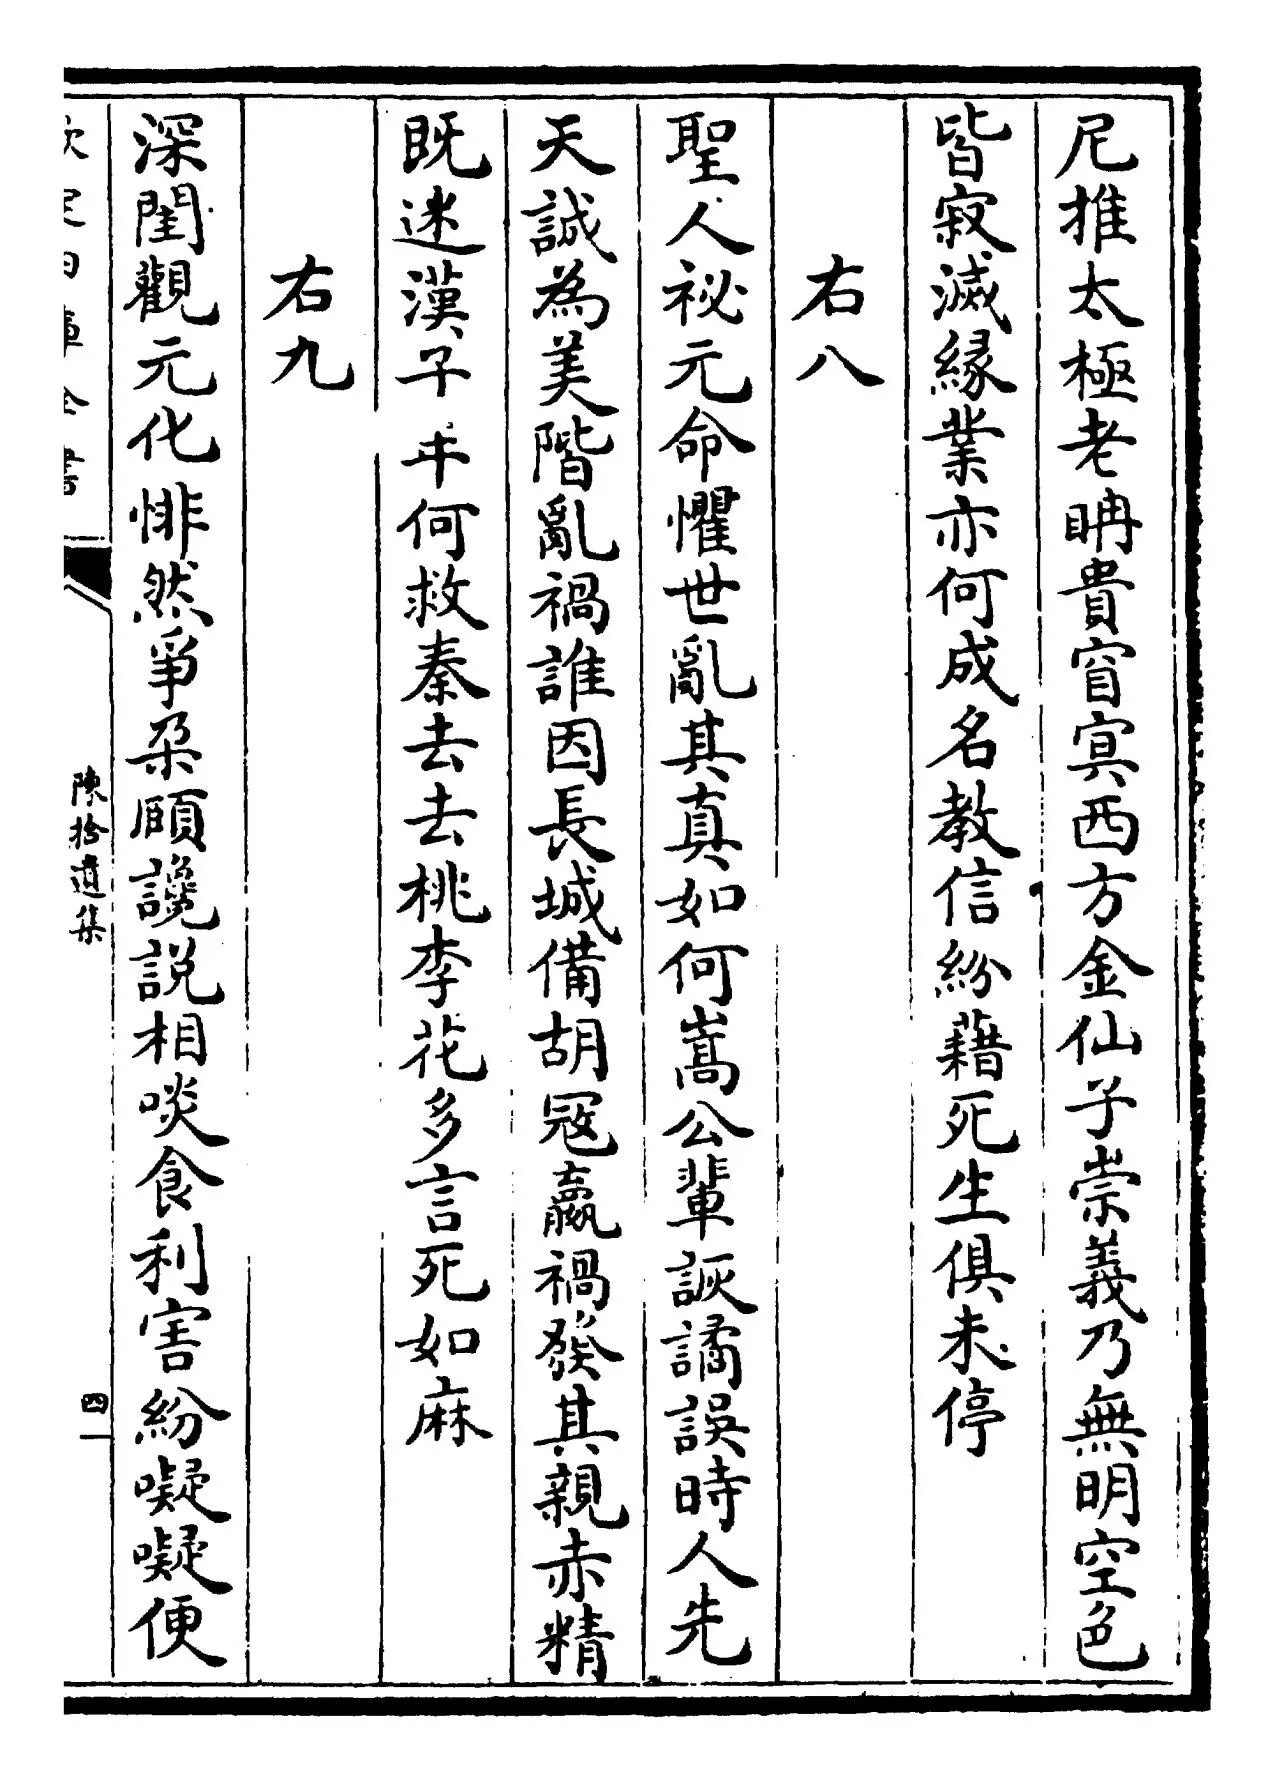 尼推太極老聃貴窅冥西方金仙子崇義乃無明空色
皆寂滅緣業亦何成名教信紛藉死生俱未停
右八
聖人祕元命懼世亂其真如何嵩公輩詼譎誤時人先
天誠為美階亂禍誰因長城備胡寇嬴禍發其親赤精
既迷漢子年何救秦去去桃李花多言死如麻
右九
深閨觀元化悱然爭朵頤讒説相啖食利害紛㘈㘈便
欽定四庫全書
陳拾遺集
四